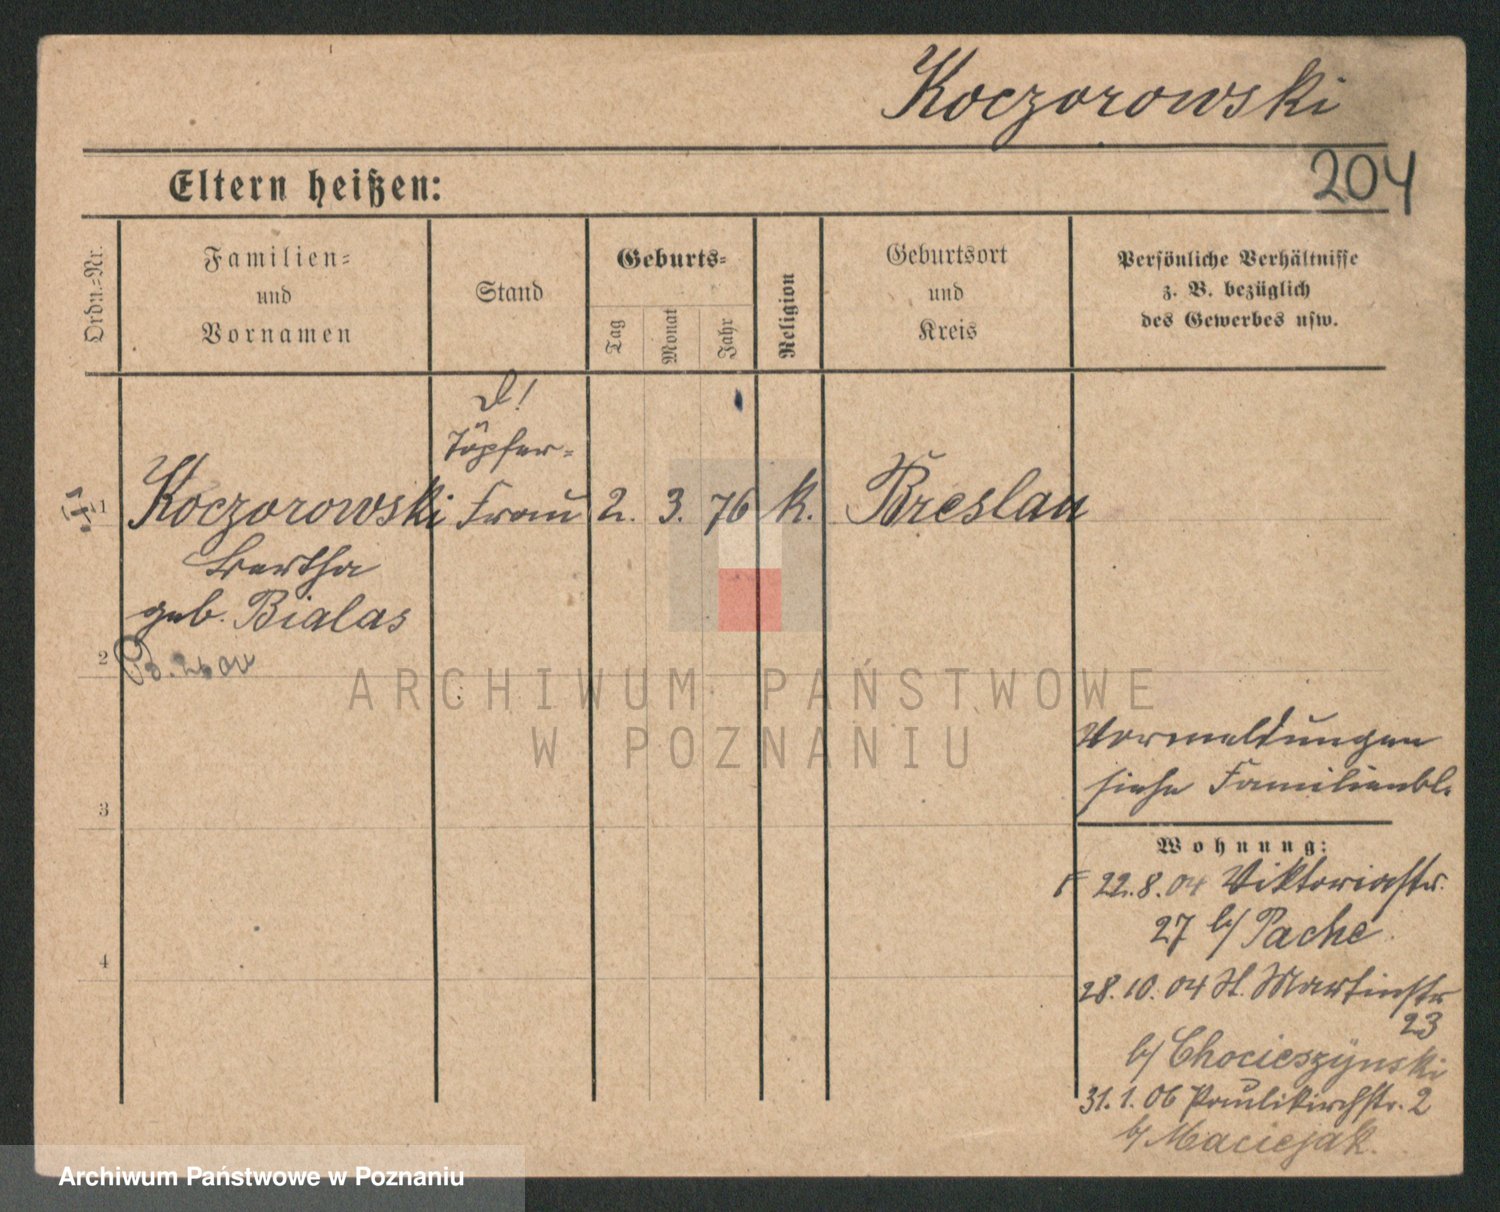 Koczorowski
204
Eltern heißen:
Ordn.-Nr.
Familien-
und
Vornamen
Stand
Geburts-
Tag
Monat
Jahr
Religion
Geburtsort
und
Kreis
Persönliche Verhältnisse
z. B. bezüglich
des Gewerbes usw.
Töpfer-
1 Koczorowski Frau 2. 3. 76 k. Breslau
Bertha
geb. Bialas
2
ARCHIWUM PAŃSTWOWE
W POZNANIU
Vormeldungen
siehe Familienbl.
3
Wohnung:
22.8.04 Viktoriastr.
27 b/ Pache
4
28.10.04 St. Martinstr
23
b/ Chocieszynski
31.1.06 Paulikirchstr. 2
b/ Maciejak.
Archiwum Państwowe w Poznaniu